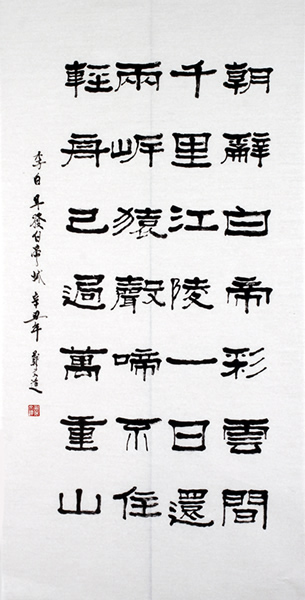 朝辭白帝彩雲間
千里江陵一日還
兩岸猿聲啼不住
輕舟已過萬重山
李白早發白帝城 辛丑年